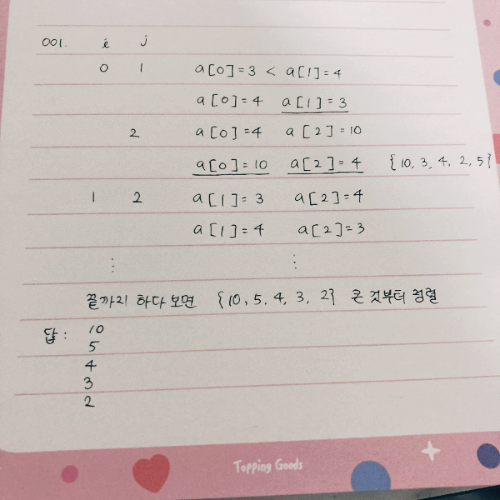 001. i j
0 1 a[0]=3 < a[1]=4
a[0]=4 a[1]=3
2 a[0]=4 a[2]=10
a[0]=10 a[2]=4 {10, 3, 4, 2, 5}
1 2 a[1]=3 a[2]=4
a[1]=4 a[2]=3
⋮ ⋮
끝까지 하다보면 {10, 5, 4, 3, 2} 큰 것부터 정렬
답: 10
5
4
3
2
Topping Goods